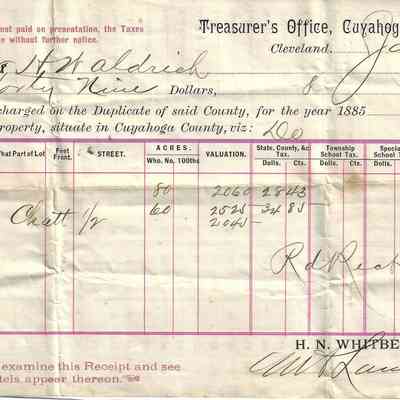 not paid on presentation, the Taxes
e without further notice.
Treasurer's Office, Cuyahoga
Cleveland,
H Waldrich
Forty Nine Dollars,
charged on the Duplicate of said County, for the year 1885
property, situate in Cuyahoga County, viz:
What Part of Lot Feet Front. STREET. ACRES. Who. No. 100ths VALUATION. State, County, &c Tax. Dolls. Cts. Township School Tax. Dolls. Cts. Special School Tax. Dolls.
80 2060 28 43
Chatt 1/2 60 2525 34 85
2045
Rd Rec
H. N. WHITBE
examine this Receipt and see
tels appear thereon.